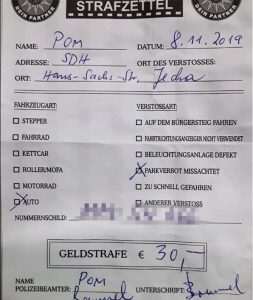 DEIN PARTNER STRAFZETTEL DEIN PARTNER
NAME: POM DATUM: 8.11.2019
ADRESSE: SDH ORT DES VERSTOSSES:
ORT: Hans-Sachs-Str. Jecha
FAHRZEUGART: VERSTOSSART:
STEPPER AUF DEM BÜRGERSTEIG FAHREN
FAHRRAD FAHRTRICHTUNGSANZEIGER NICHT VERWENDET
KETTCAR BELEUCHTUNGSANLAGE DEFEKT
ROLLER/MOFA PARKVERBOT MISSACHTET
MOTORRAD ZU SCHNELL GEFAHREN
AUTO ANDERER VERSTOSS
NUMMERNSCHILD:
GELDSTRAFE € 30,-
NAME POM
POLIZEIBEAMTER: UNTERSCHRIFT: